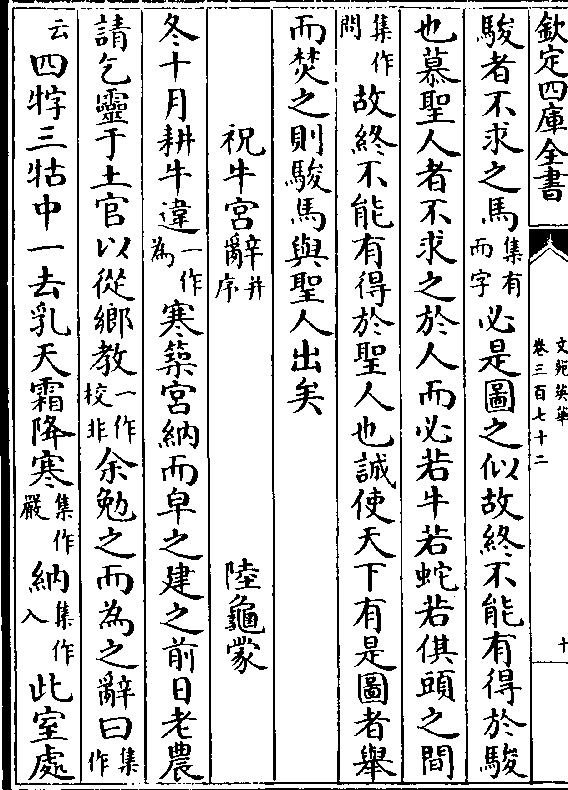 欽定四庫全書
文苑英華
卷三百七十二
十
駿者不求之馬集有而字必是圖之似故終不能有得於駿
也慕聖人者不求之於人而必若牛若蛇若倛頭之間
集作問故終不能有得於聖人也誠使天下有是圖者舉
而焚之則駿馬與聖人出矣
祝牛宫辭并序 陸龜蒙
冬十月耕牛違一作為寒築宫納而皁之建之前日老農
請乞靈于土官以從鄉教一作校非余勉之而為之辭曰集作
云四牸三牯中一去乳天霜降寒集作嚴納集作入此室處